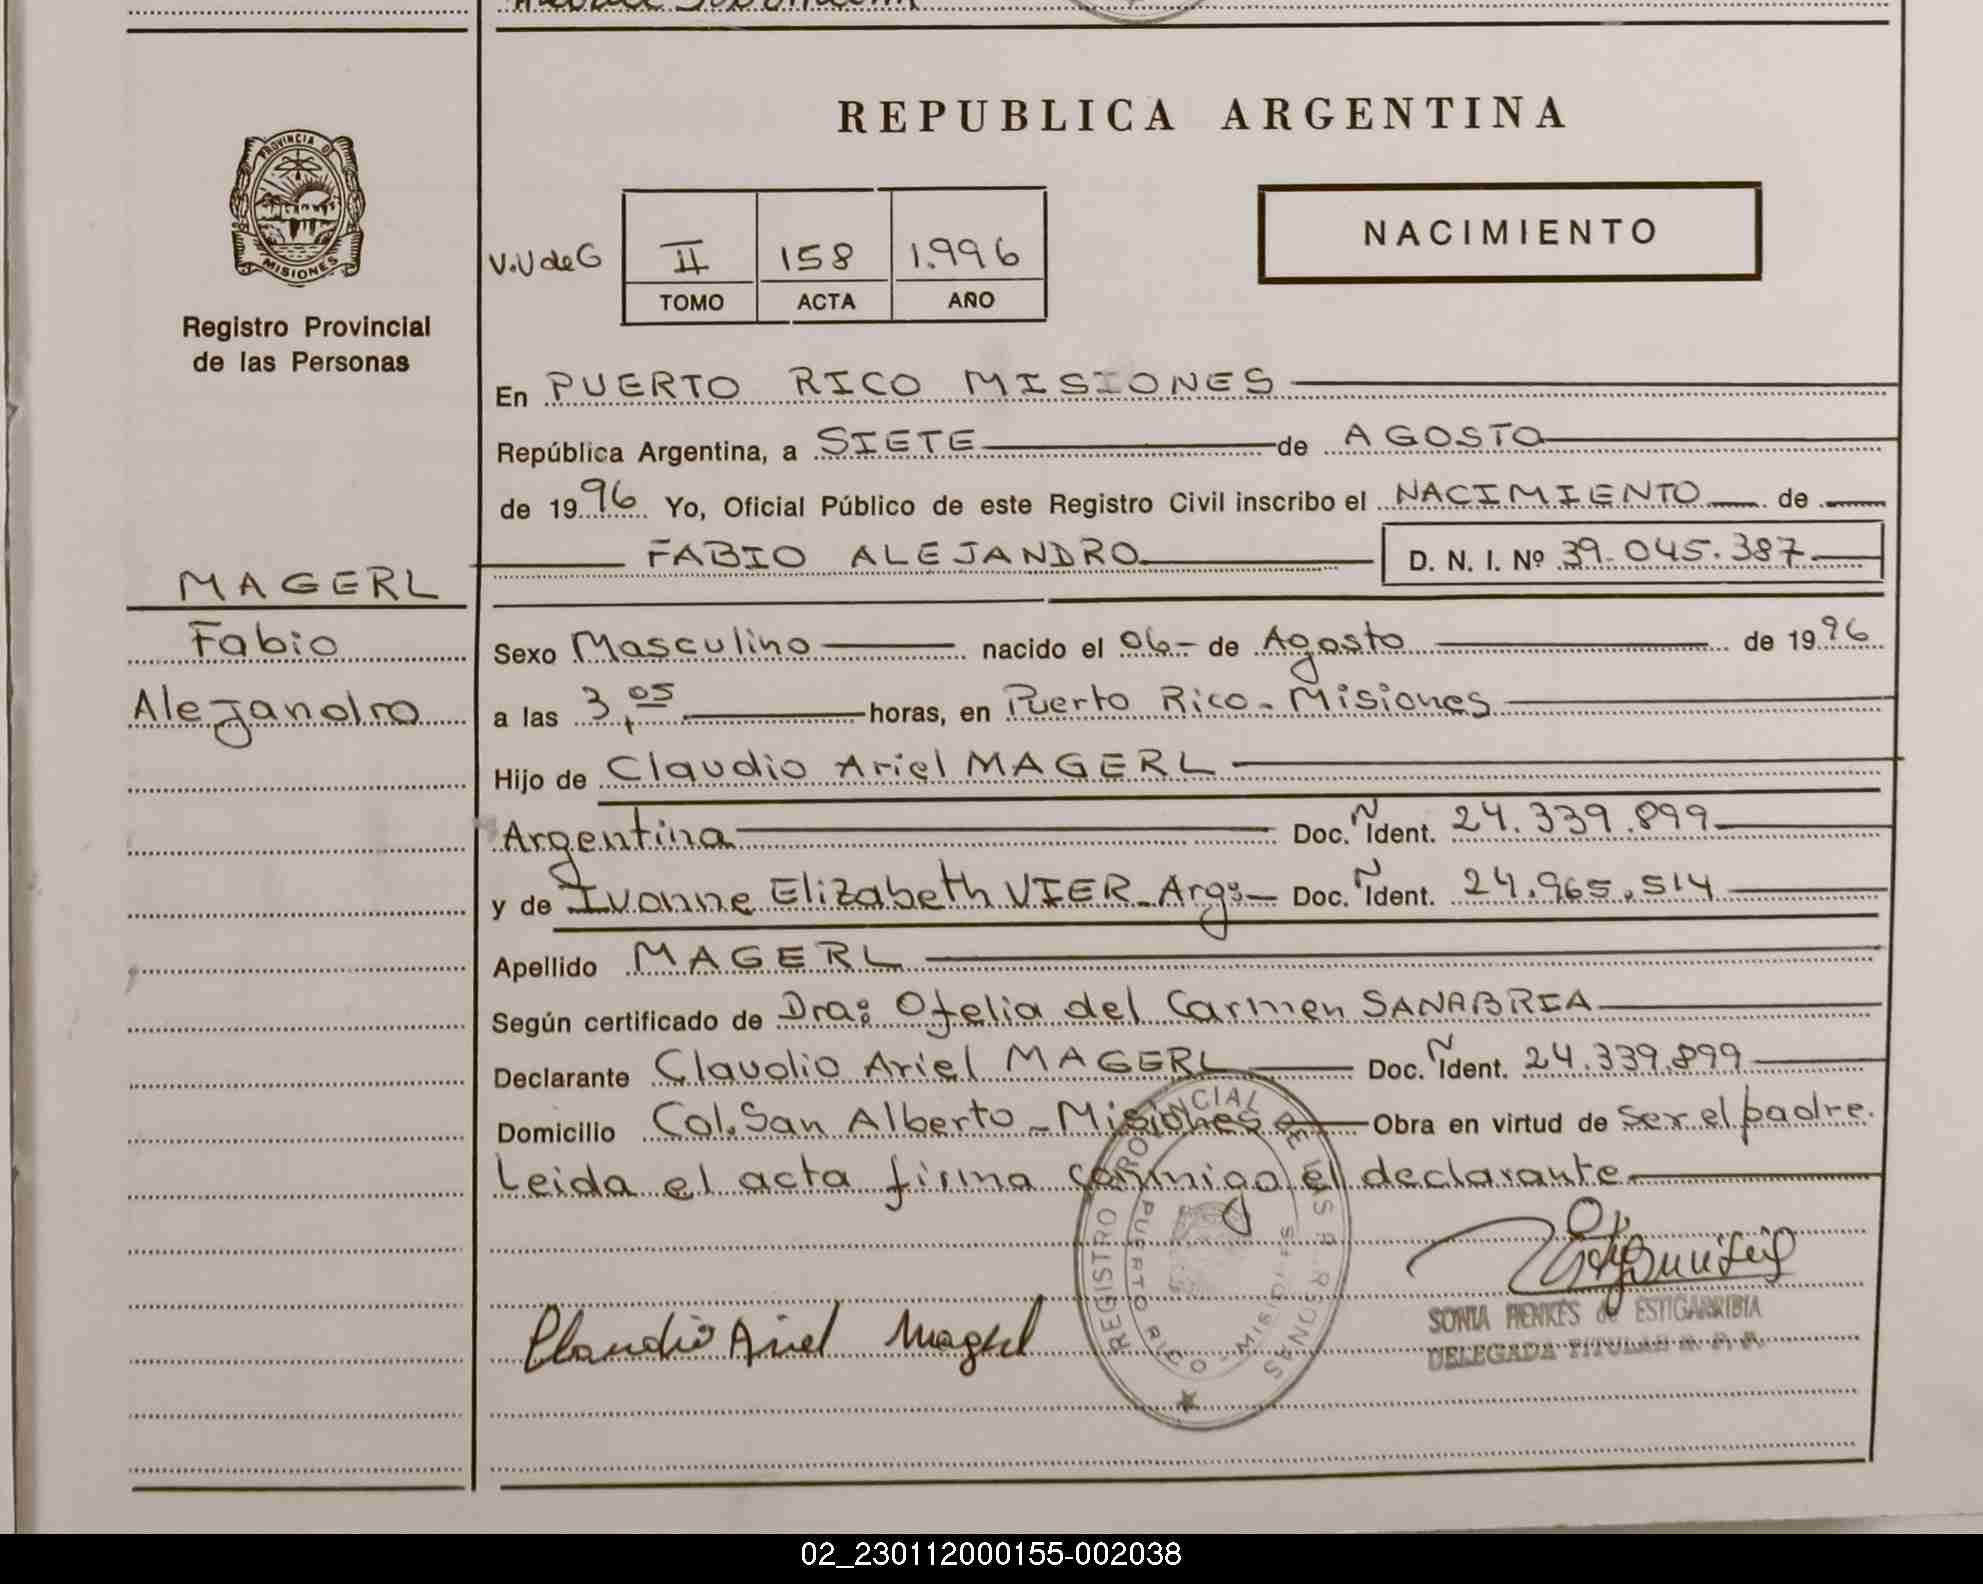 REPUBLICA ARGENTINA
PROVINCIA DE
MISIONES
Registro Provincial
de las Personas
NACIMIENTO
V.U de G
II 158 1.996
TOMO ACTA AÑO
En PUERTO RICO MISIONES
República Argentina, a SIETE de AGOSTO
de 1996 Yo, Oficial Público de este Registro Civil inscribo el NACIMIENTO de
FABIO ALEJANDRO D. N. I. Nº 39.045.387
MAGERL
Fabio
Alejandro
Sexo Masculino nacido el 06- de Agosto de 1996
a las 3,05 horas, en Puerto Rico - Misiones
Hijo de Claudio Ariel MAGERL
Argentina Doc. Ident. 24.339.899
y de Ivonne Elizabeth VIER - Arg: Doc. Ident. 24.965.514
Apellido MAGERL
Según certificado de Dra: Ofelia del Carmen SANABRIA
Declarante Claudio Ariel MAGERL Doc. Ident. 24.339.899
Domicilio Col. San Alberto - Misiones Obra en virtud de ser el padre.
Leida el acta firma conmigo el declarante
REGISTRO PROVINCIAL DE LAS PERSONAS
PUERTO RICO - MISIONES
Claudio Ariel Magerl
SONIA HENKES de ESTIGARRIBIA
DELEGADA TITULAR R. P. P.
02_230112000155-002038